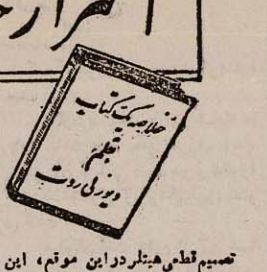 اسرار
خلاصه یک کتاب
بقلم
دیوز لی روت
تصمیم قطعی هیتلر در این موقع، این